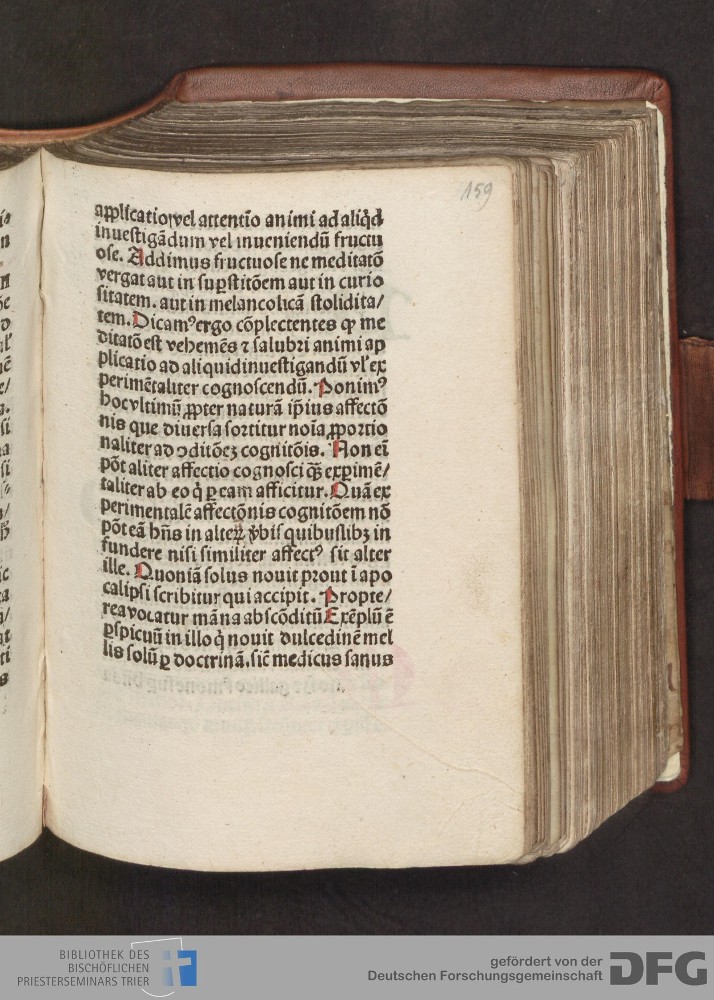 159
applicatio vel attentio animi ad aliqd̄
inuestigādum vel inueniendū fructu
ose. Addimus fructuose ne meditatō
vergat aut in suꝑstitōem aut in curio
sitatem. aut in melancolicā stolidita/
tem. Dicamꝰ ergo cōplectentes ꝙ me
ditatō est vehemēs ⁊ salubri animi ap
plicatio ad aliquid inuestigandū vl̓ ex
perimētaliter cognoscendū. Ponimꝰ
hoc vltimū ꝓpter naturā ip̄ius affectō
nis que diuersa sortitur noīa ꝓportio
naliter ad ↄditōeꝫ cognitōis. Non eī
pōt aliter affectio cognosci qꝫ̄ exꝑimē/
taliter ab eo q̇ ꝑ eam afficitur. Quā ex
perimentalē affectōnis cognitōem nō
pōt eā hn̄s in alteꝝ v̄bis quibuslibꝫ in
fundere nisi similiter affectꝰ sit alter
ille. Quoniā solus nouit prout ī apo
calipsi scribitur qui accipit. Propte/
rea vocatur māna abscōditū Exēplū ē
ꝑspicuū in illo q̇ nouit dulcedinē mel
lis solū ꝑ doctrinā. sic̄ medicus sanus
BIBLIOTHEK DES
BISCHÖFLICHEN
PRIESTERSEMINARS TRIER
gefördert von der
Deutschen Forschungsgemeinschaft
DFG